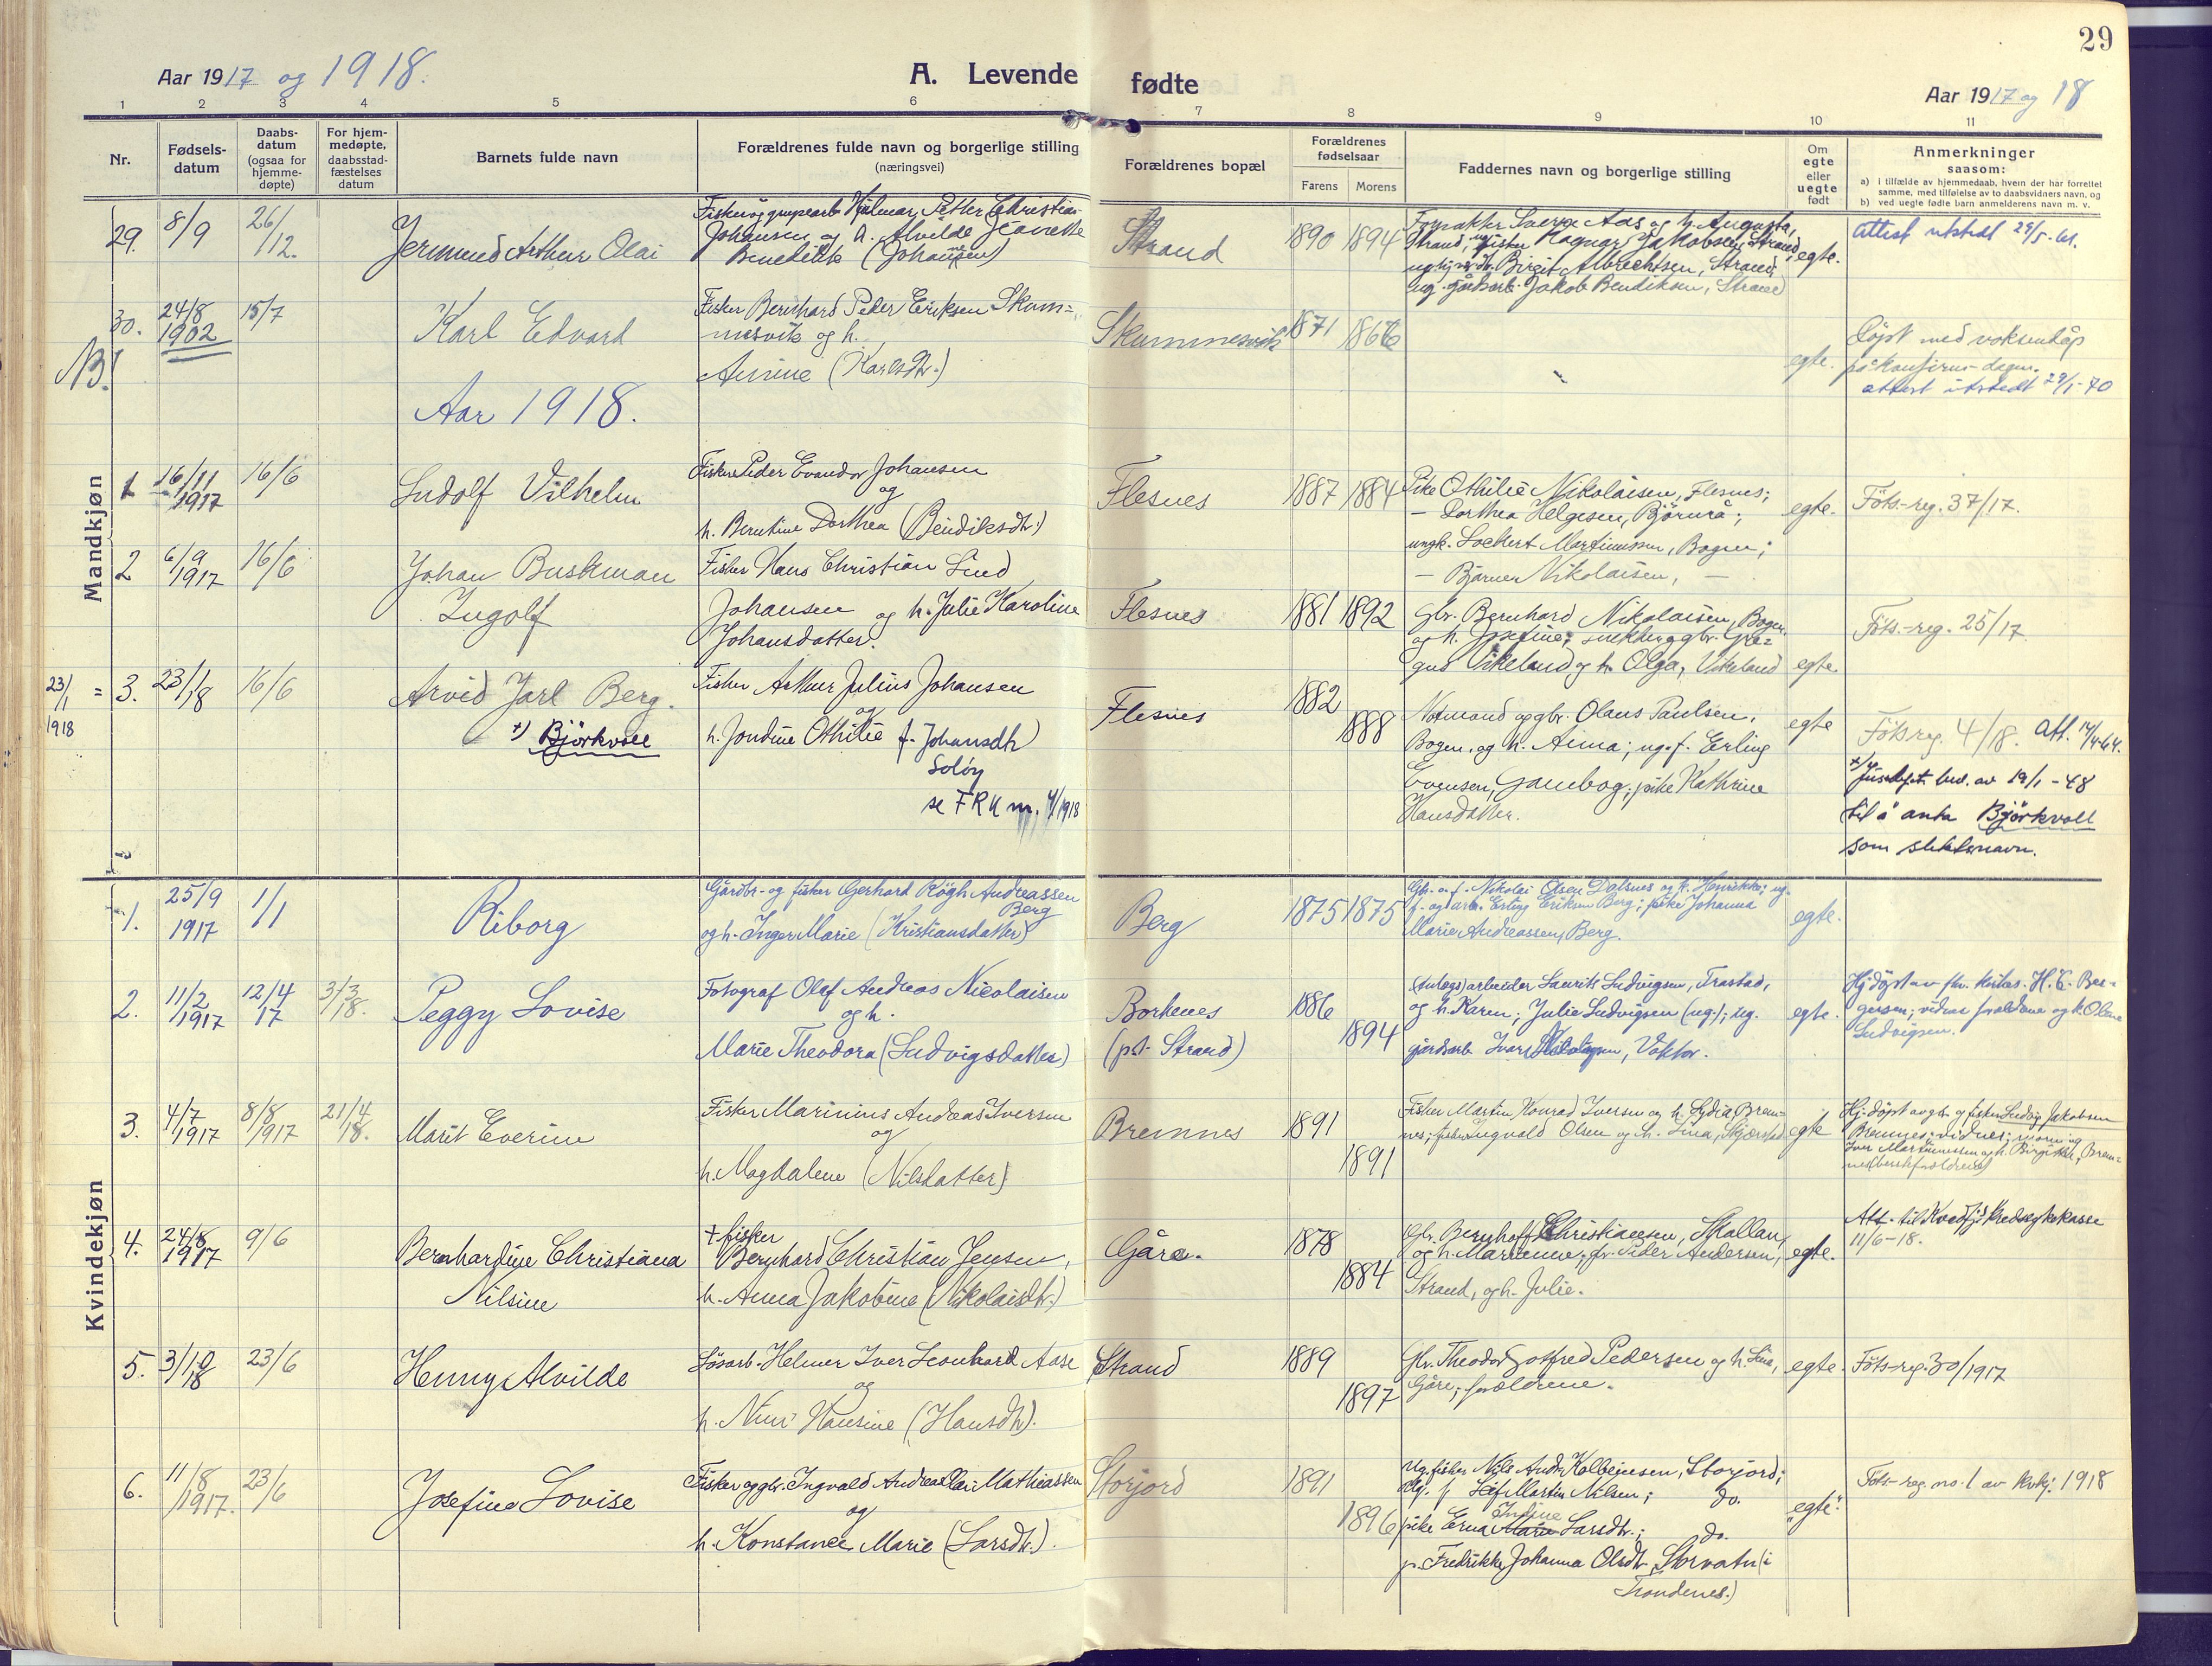 29
Aar 1917 og 1918.
A. Levende fødte
Aar 1917 og 18
1 2 3 4 5 6 7 8 9 10 11
Nr.
Fødsels-
datum
Daabs-
datum
(ogsaa for
hjemme-
døpte)
For hjem-
medøpte,
daabsstad-
fæstelses
datum
Barnets fulde navn
Forældrenes fulde navn og borgerlige stilling
(næringsvei)
Forældrenes bopæl
Forældrenes
fødselsaar
Farens Morens
Faddernes navn og borgerlige stilling
Om
egte
eller
uegte
født
Anmerkninger
saasom:
a) i tilfælde av hjemmedaab, hvem der har forrettet
samme, med tilføielse av to daabsvidners navn, og
b) ved uegte fødte barn anmelderens navn m. v.
Mandkjøn
29. 8/9 26/12.
Jermund Arthur Olai
Hjalmar Petter Christian
Johansen og h. Alvilde Jeanette
Benedikte (Johansen)
Strand
1890 1894
Forpakter Sverre Aas og h. Augusta,
Strand; fisker Ragnar Jakobsen, Strand;
Birgit Albrechtsen, Strand;
ug. gårdsarb. Jakob Bendiksen, Strand
egte.
Attest utstedt 29/5-61.
NB!
30. 24/8 1902 15/7
Karl Edvard
Fisker Bernhard Peder Eriksen Skum-
mesvik og h.
Annine (Karlsdtr.)
Skummesvik
1871 1866
egte.
Døpt med voksendåp
på konfirm-dagen.
attest utstedt 29/1-70
Aar 1918.
1 16/11 1917 16/6
Ludolf Vilhelm
Fisker Peder Evandor Johansen
og
h. Berntine Dorthea (Bendiksdtr.)
Flesnes
1887 1884
Pike Othilie Nikolaisen, Flesnes;
— Dorthea Helgesen, Björnrå;
ungk. Lockert Martinussen, Bogen;
— Bjarner Nikolaisen, —
egte.
Föts.-reg. 37/17.
2 6/9 1917 16/6
Johan Buskman
Ingolf
Fisker Hans Christian Lind
Johansen og h. Julie Karoline
Johansdatter.
Flesnes
1881 1892
Gbr. Bernhard Nikolaisen, Bogen,
og h. Josefine; snekker og gbr. Gre-
gus Vikeland og h. Olga, Vikeland
egte
Föts.-reg. 25/17.
23/1 1918 = 3. 23/1 18 16/6
Arvid Jarl Berg.
+) Björkvoll
Fisker Arthur Julius Johansen
og
h. Jondine Othilie f. Johansdtr)
Soløy
se FRK nr. 4/1918
Flesnes
1882
1888
Notmand og gbr. Olaus Paulsen,
Bogen, og h. Anna; ug. f. Erling
Evensen, Gambog; pike Kathrine
Hansdatter.
egte
Fötsreg. 4/18. Att. 14/4-64.
+) bev. av 19/1-48
til å anta Björkvoll
som slektsnavn.
Kvindekjøn
1. 25/9 1917 1/1
Riborg
Gårdbr.- og fisker Gerhard Rögh Andreassen
Berg
og h. Inger Marie (Kristiansdatter)
Berg
1875 1875
Gbr. o. f. Nikolai Olsen Dalsnes og h. Henrikke; ug.
f. og arb. Erling Eriksen Berg; pike Johanna
Marie Andreassen, Berg.
egte.
2. 11/2 1917 12/4 17 3/3 18.
Peggy Lovise
Fotograf Olaf Andreas Nicolaisen
og h.
Marie Theodora (Ludvigsdatter)
Borkenes
(pst. Strand)
1886
1894
Anlegsarbeider Laurits Ludvigsen, Trastad,
og h. Karen; Julie Ludvigsen (ug.); ug.
gårdsarb. Ivar Ludvigsen, Voktor.
egte.
Hj.døpt av H. C. Ber-
gersen; vidner forældrene og h. Olena
Ludvigsen.
3. 4/7 1917 8/8 1917 21/4 18.
Marit Everine
Fisker Marinius Andreas Iversen
og
h. Magdalene (Nilsdatter)
Bremnes
1891
1891
Fisker Martin Konrad Iversen og h. Lydia, Brem-
nes; fisker Ingvald Olsen og h. Lina, Skjærstad
egte
Hj.døpt av gbr. og fisker Ludvig Jakobsen
Bremnes; vidner: moren og
Iver Martinussen og h. Birgitte, Brem-
nes (besteforældrene)
4. 24/8 1917 9/6
Bernhardine Christiana
Nilsine
+ fisker
Bernhard Christian Jensen,
h. Anna Jakobine (Nikolaisdtr.)
Gåre.
1878
1884
Gbr. Bernhoff Christiansen, Skallan,
og h. Marianne; Peder Andersen,
Strand, og h. Julie.
egte.
Att. til Kvedfj. kredssykekasse
11/6-18.
5. 3/10 18 23/6
Henny Alvilde
Løsarb. Helmer Iver Leonhard Aase
og
h. Hansine (Hansdtr).
Strand
1889
1897
Gbr. Theodor Gotfred Pedersen og h. Lina,
Gåre; forældrene.
egte.
Föts-reg. 30/1917
6. 11/8 1917. 23/6
Josefine Lovise
Fisker og gbr. Ingvald Andreas Olai Mathiassen
og
h. Konstance Marie (Larsdtr.).
Storjord
1891
1896
Ug. fisker Nils Andr. Kolbeinsen, Storjord;
Ug. f. Leif Martin Nilsen; do.
Indine
pike Erna Marie Larsdtr.; do.
p. Fredrikke Johanna Olsdtr, Storvatn (i
Trondenes.)
"egte".
Föts-reg. no. 1 av kvkj. 1918